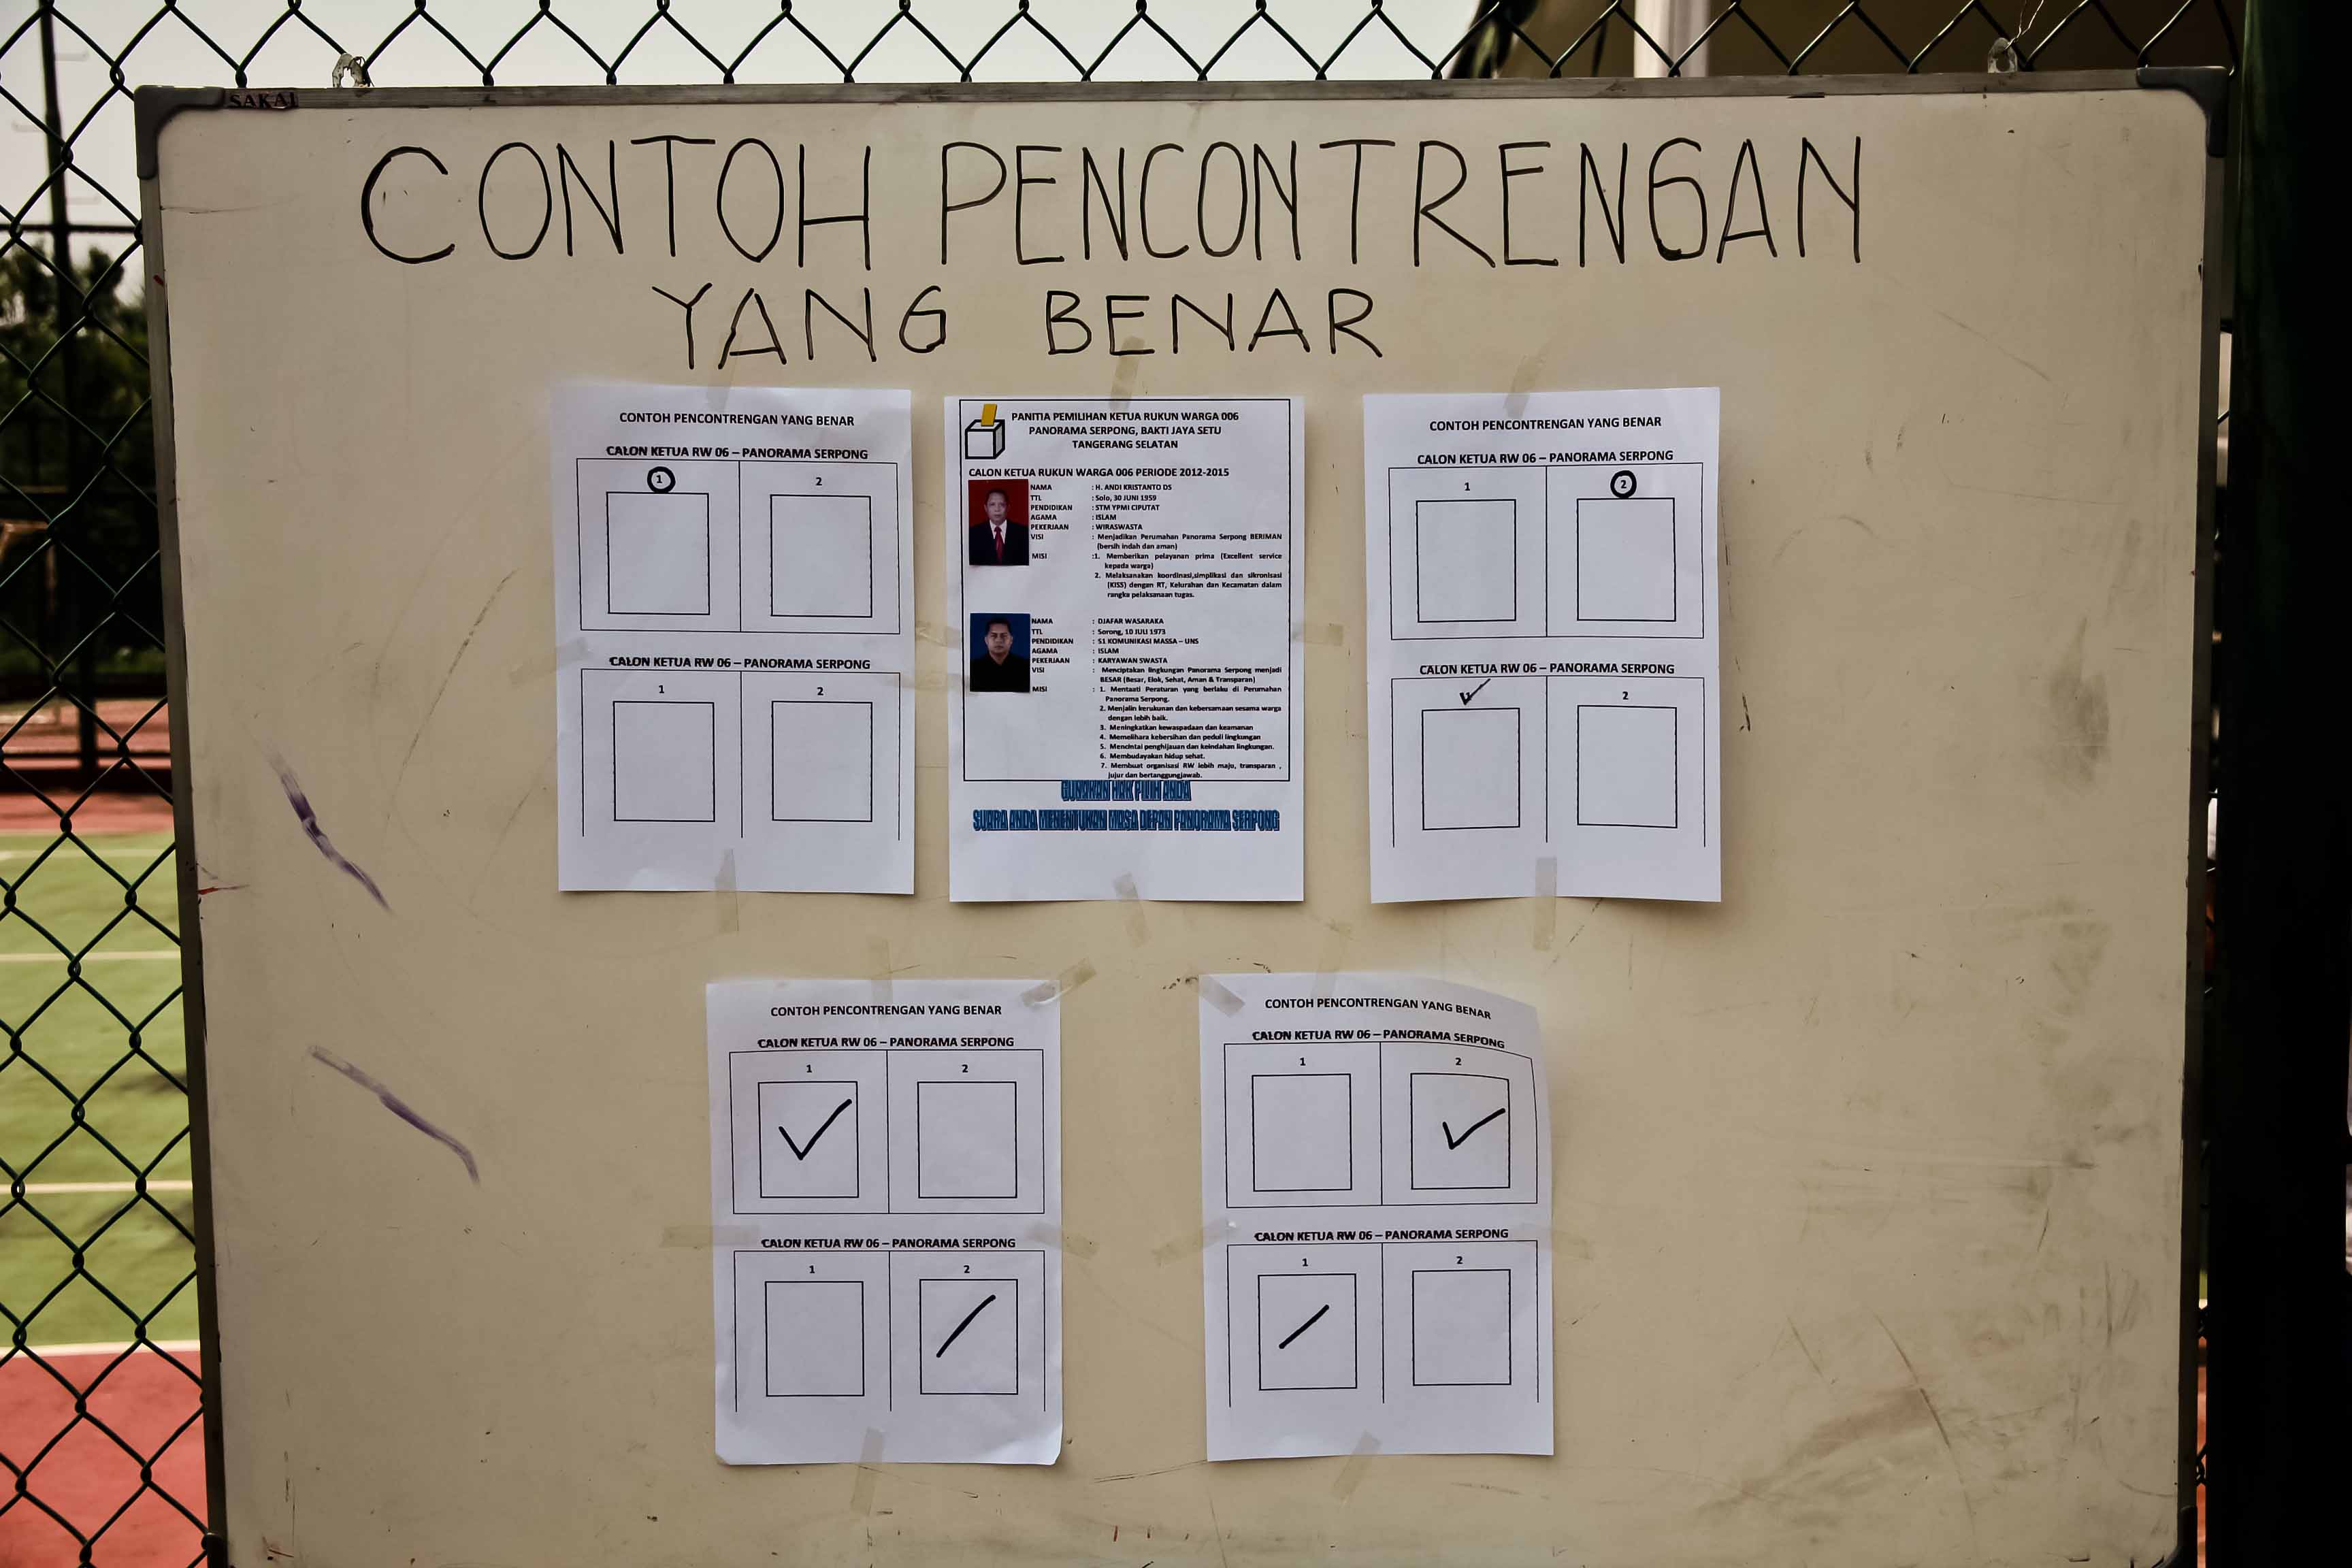 SAKAI
CONTOH PENCONTRENGAN
YANG BENAR
CONTOH PENCONTRENGAN YANG BENAR
CALON KETUA RW 06 – PANORAMA SERPONG
1 2
CALON KETUA RW 06 – PANORAMA SERPONG
1 2
PANITIA PEMILIHAN KETUA RUKUN WARGA 006
PANORAMA SERPONG, BAKTI JAYA SETU
TANGERANG SELATAN
CALON KETUA RUKUN WARGA 006 PERIODE 2012-2015
NAMA : H. ANDI KRISTANTO DS
TTL : Solo, 30 JUNI 1959
PENDIDIKAN : STM YPMI CIPUTAT
AGAMA : ISLAM
PEKERJAAN : WIRASWASTA
VISI : Menjadikan Perumahan Panorama Serpong BERIMAN
(bersih indah dan aman)
MISI :1. Memberikan pelayanan prima (Excellent service
kepada warga)
2. Melaksanakan koordinasi,simplikasi dan sikronisasi
(KISS) dengan RT, Kelurahan dan Kecamatan dalam
rangka pelaksanaan tugas.
NAMA : DJAFAR WASARAKA
TTL : Sorong, 10 JULI 1973
PENDIDIKAN : S1 KOMUNIKASI MASSA – UNS
AGAMA : ISLAM
PEKERJAAN : KARYAWAN SWASTA
VISI : Menciptakan lingkungan Panorama Serpong menjadi
BESAR (Besar, Elok, Sehat, Aman & Transparan)
MISI : 1. Mentaati Peraturan yang berlaku di Perumahan
Panorama Serpong.
2. Menjalin kerukunan dan kebersamaan sesama warga
dengan lebih baik.
3. Meningkatkan kewaspadaan dan keamanan
4. Memelihara kebersihan dan peduli lingkungan
5. Mencintai penghijauan dan keindahan lingkungan.
6. Membudayakan hidup sehat.
7. Membuat organisasi RW lebih maju, transparan ,
jujur dan bertanggungjawab.
GUNAKAN HAK PILIH ANDA
SUARA ANDA MENENTUKAN MASA DEPAN PANORAMA SERPONG
CONTOH PENCONTRENGAN YANG BENAR
CALON KETUA RW 06 – PANORAMA SERPONG
1 2
CALON KETUA RW 06 – PANORAMA SERPONG
2
CONTOH PENCONTRENGAN YANG BENAR
CALON KETUA RW 06 – PANORAMA SERPONG
1 2
CALON KETUA RW 06 – PANORAMA SERPONG
1 2
CONTOH PENCONTRENGAN YANG BENAR
CALON KETUA RW 06 – PANORAMA SERPONG
1 2
CALON KETUA RW 06 – PANORAMA SERPONG
1 2